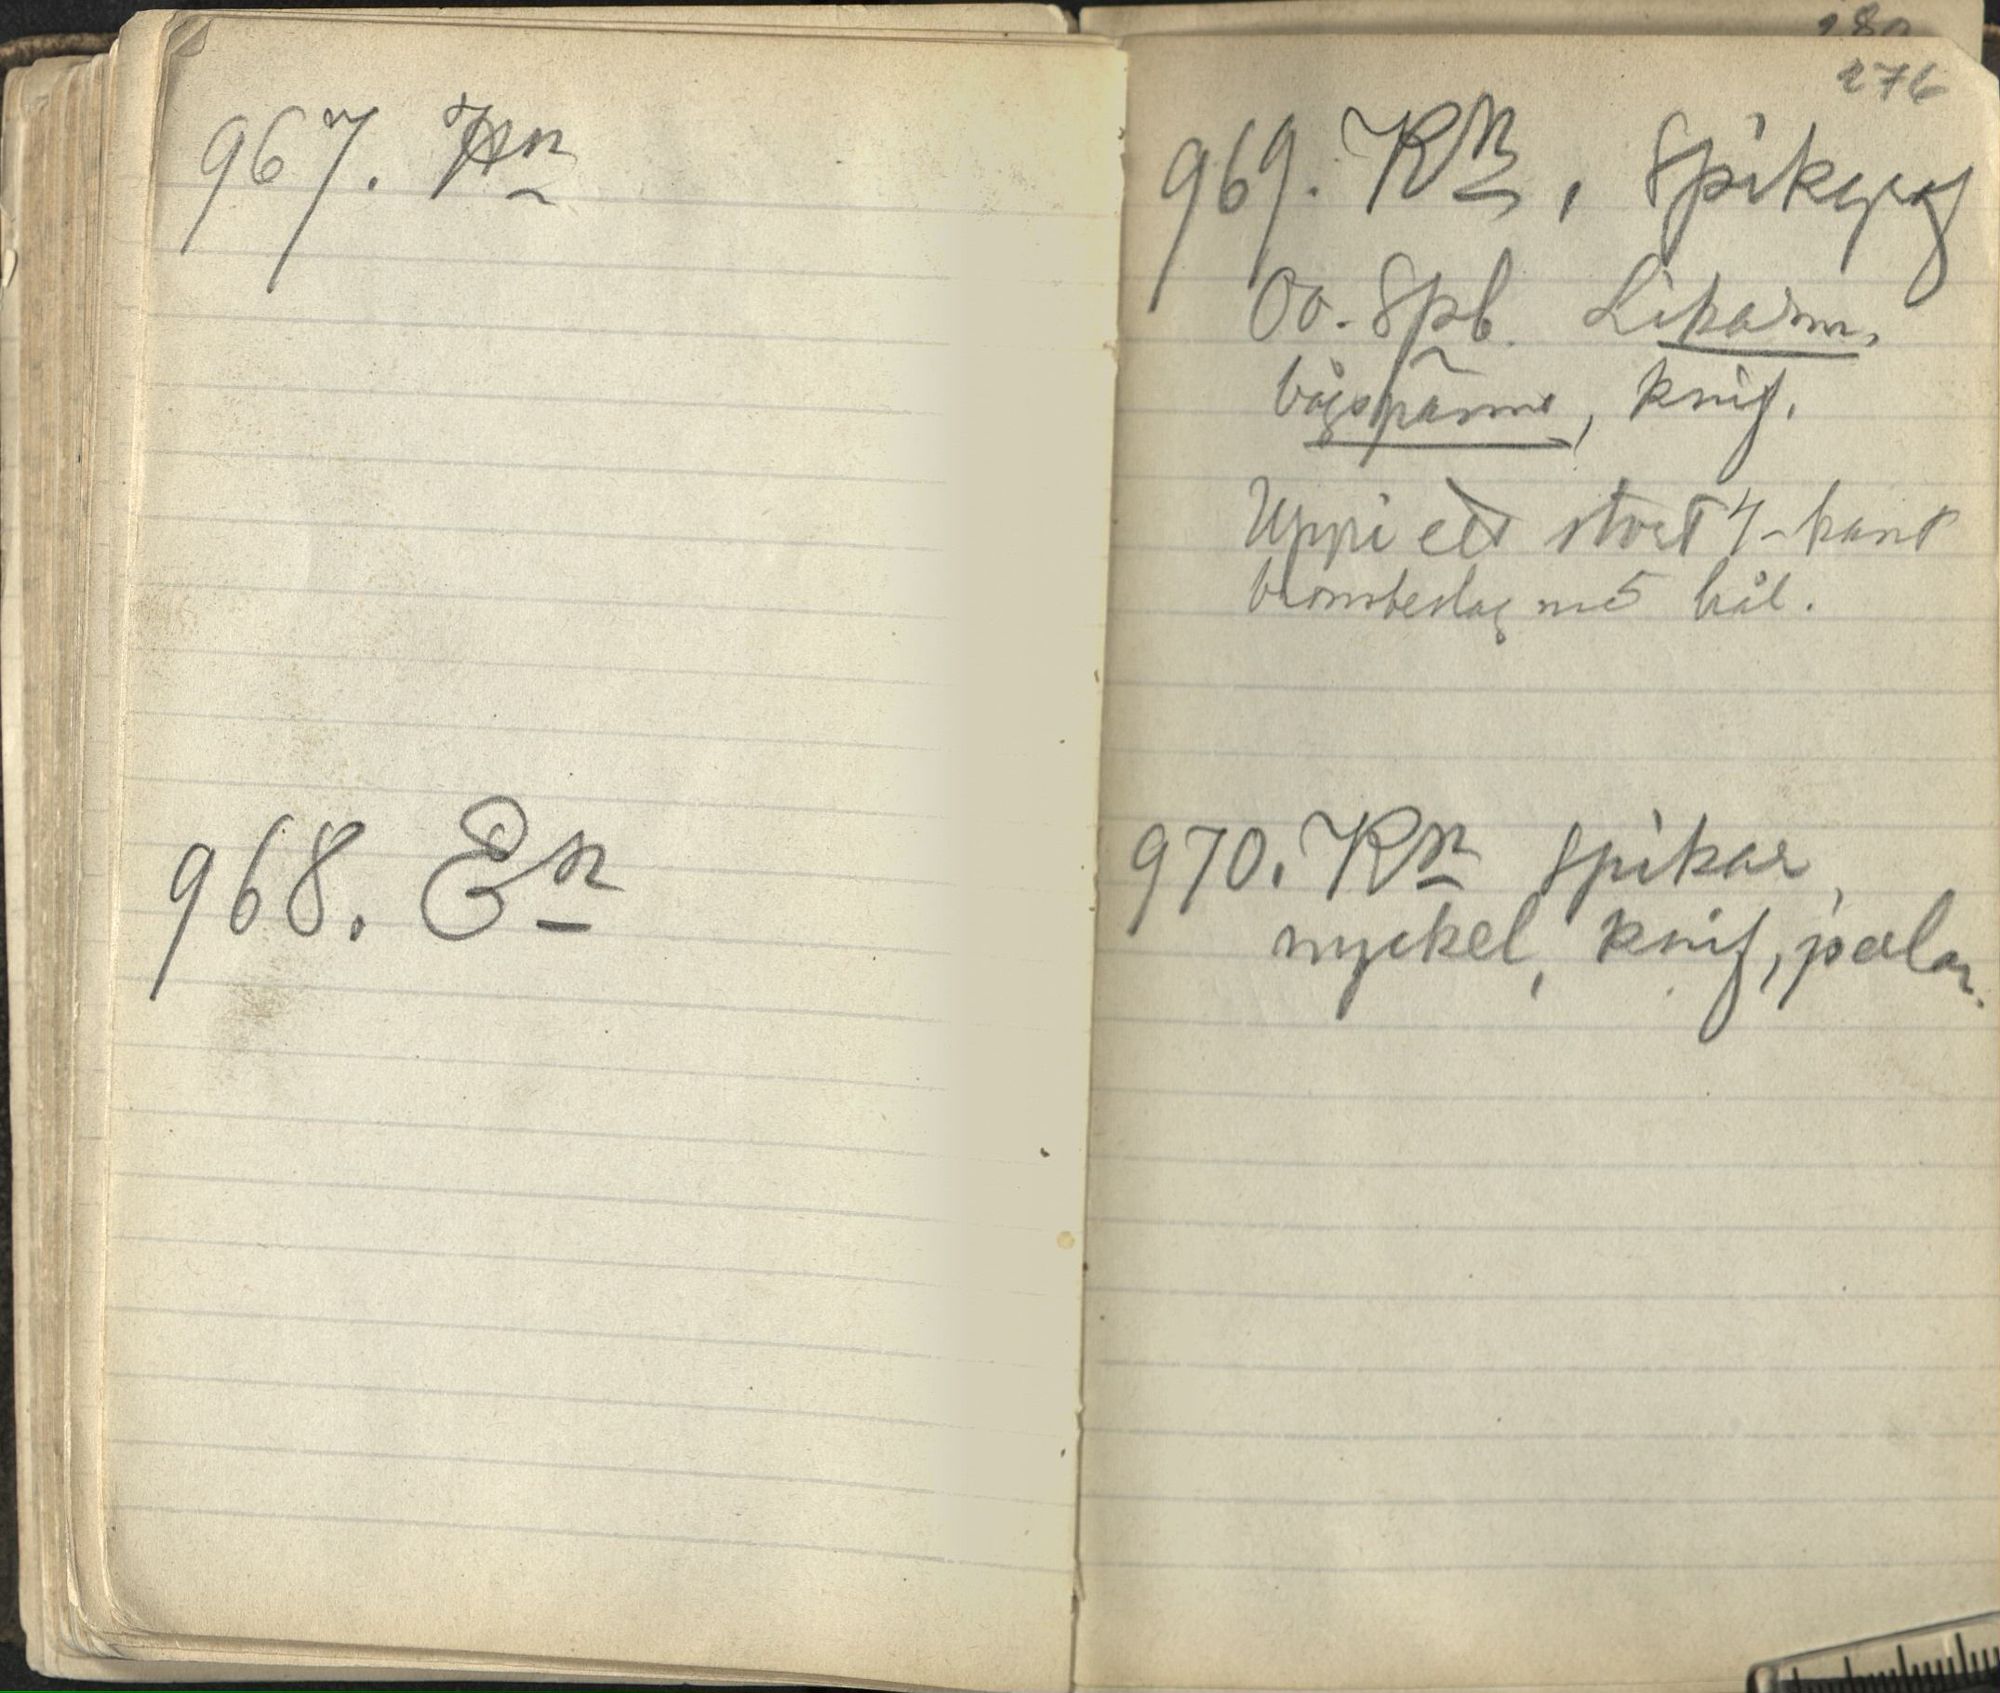 967. Kn
968. En
276
969. Kn, Spik
Oo. Spb. Likarm.
bågspänne, knif.
Uppi ett stort 4-kant
bronsbeslag m 5 hål.
970. Kn spikar,
nyckel, knif, pärlar.